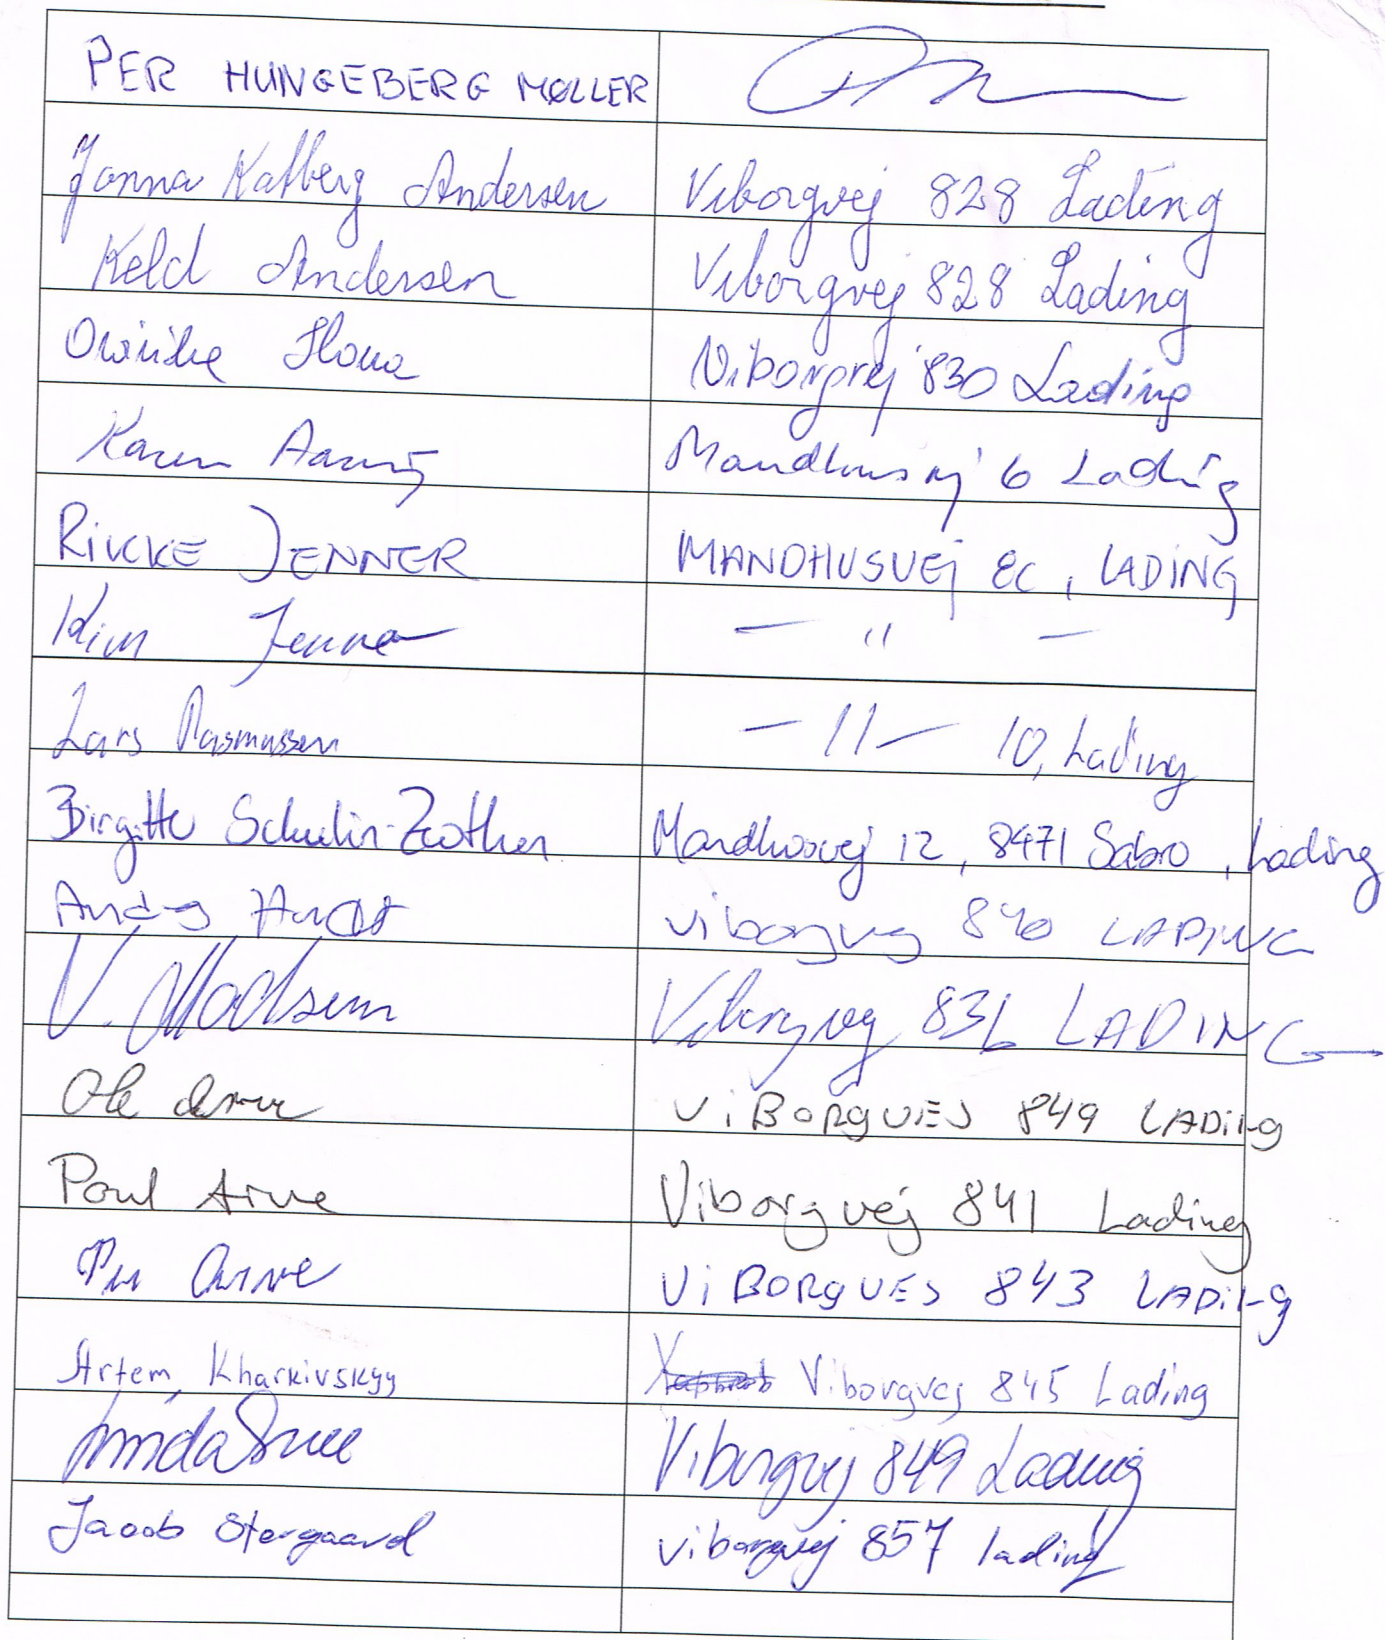 PER HUNGEBERG MØLLER
Jonna Kalberg Andersen Viborgvej 828 Lading
Keld Andersen Viborgvej 828 Lading
Viborgvej 830 Lading
Karen Mandhusvej 6 Lading
RIKKE JENNER MANDHUSVEJ 8C, LADING
Kim Jenner — " —
Lars Rasmussen — 11 — 10, Lading
Birgitte Schulin-Zeuthen Mandhusvej 12, 8471 Sabro, Lading
viborgvej 840 LADING
V. Madsen Viborgvej LADING
Ole ViBORgVEJ 849 LADiNg
Poul Arve Viborgvej 841 Lading
Per Arve ViBORgVEJ 843 LADiNg
Artem Kharkivskyy Viborgvej 845 Lading
Linda Viborgvej 849 Lading
Jacob Østergaard viborgvej 857 lading